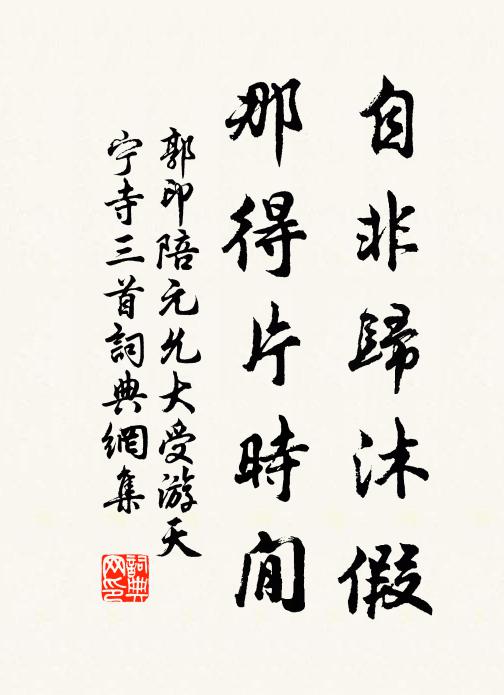 自非歸沐假
那得片時閒
郭印陪元允大受游天
宁寺三首詞典網集
詞典网印